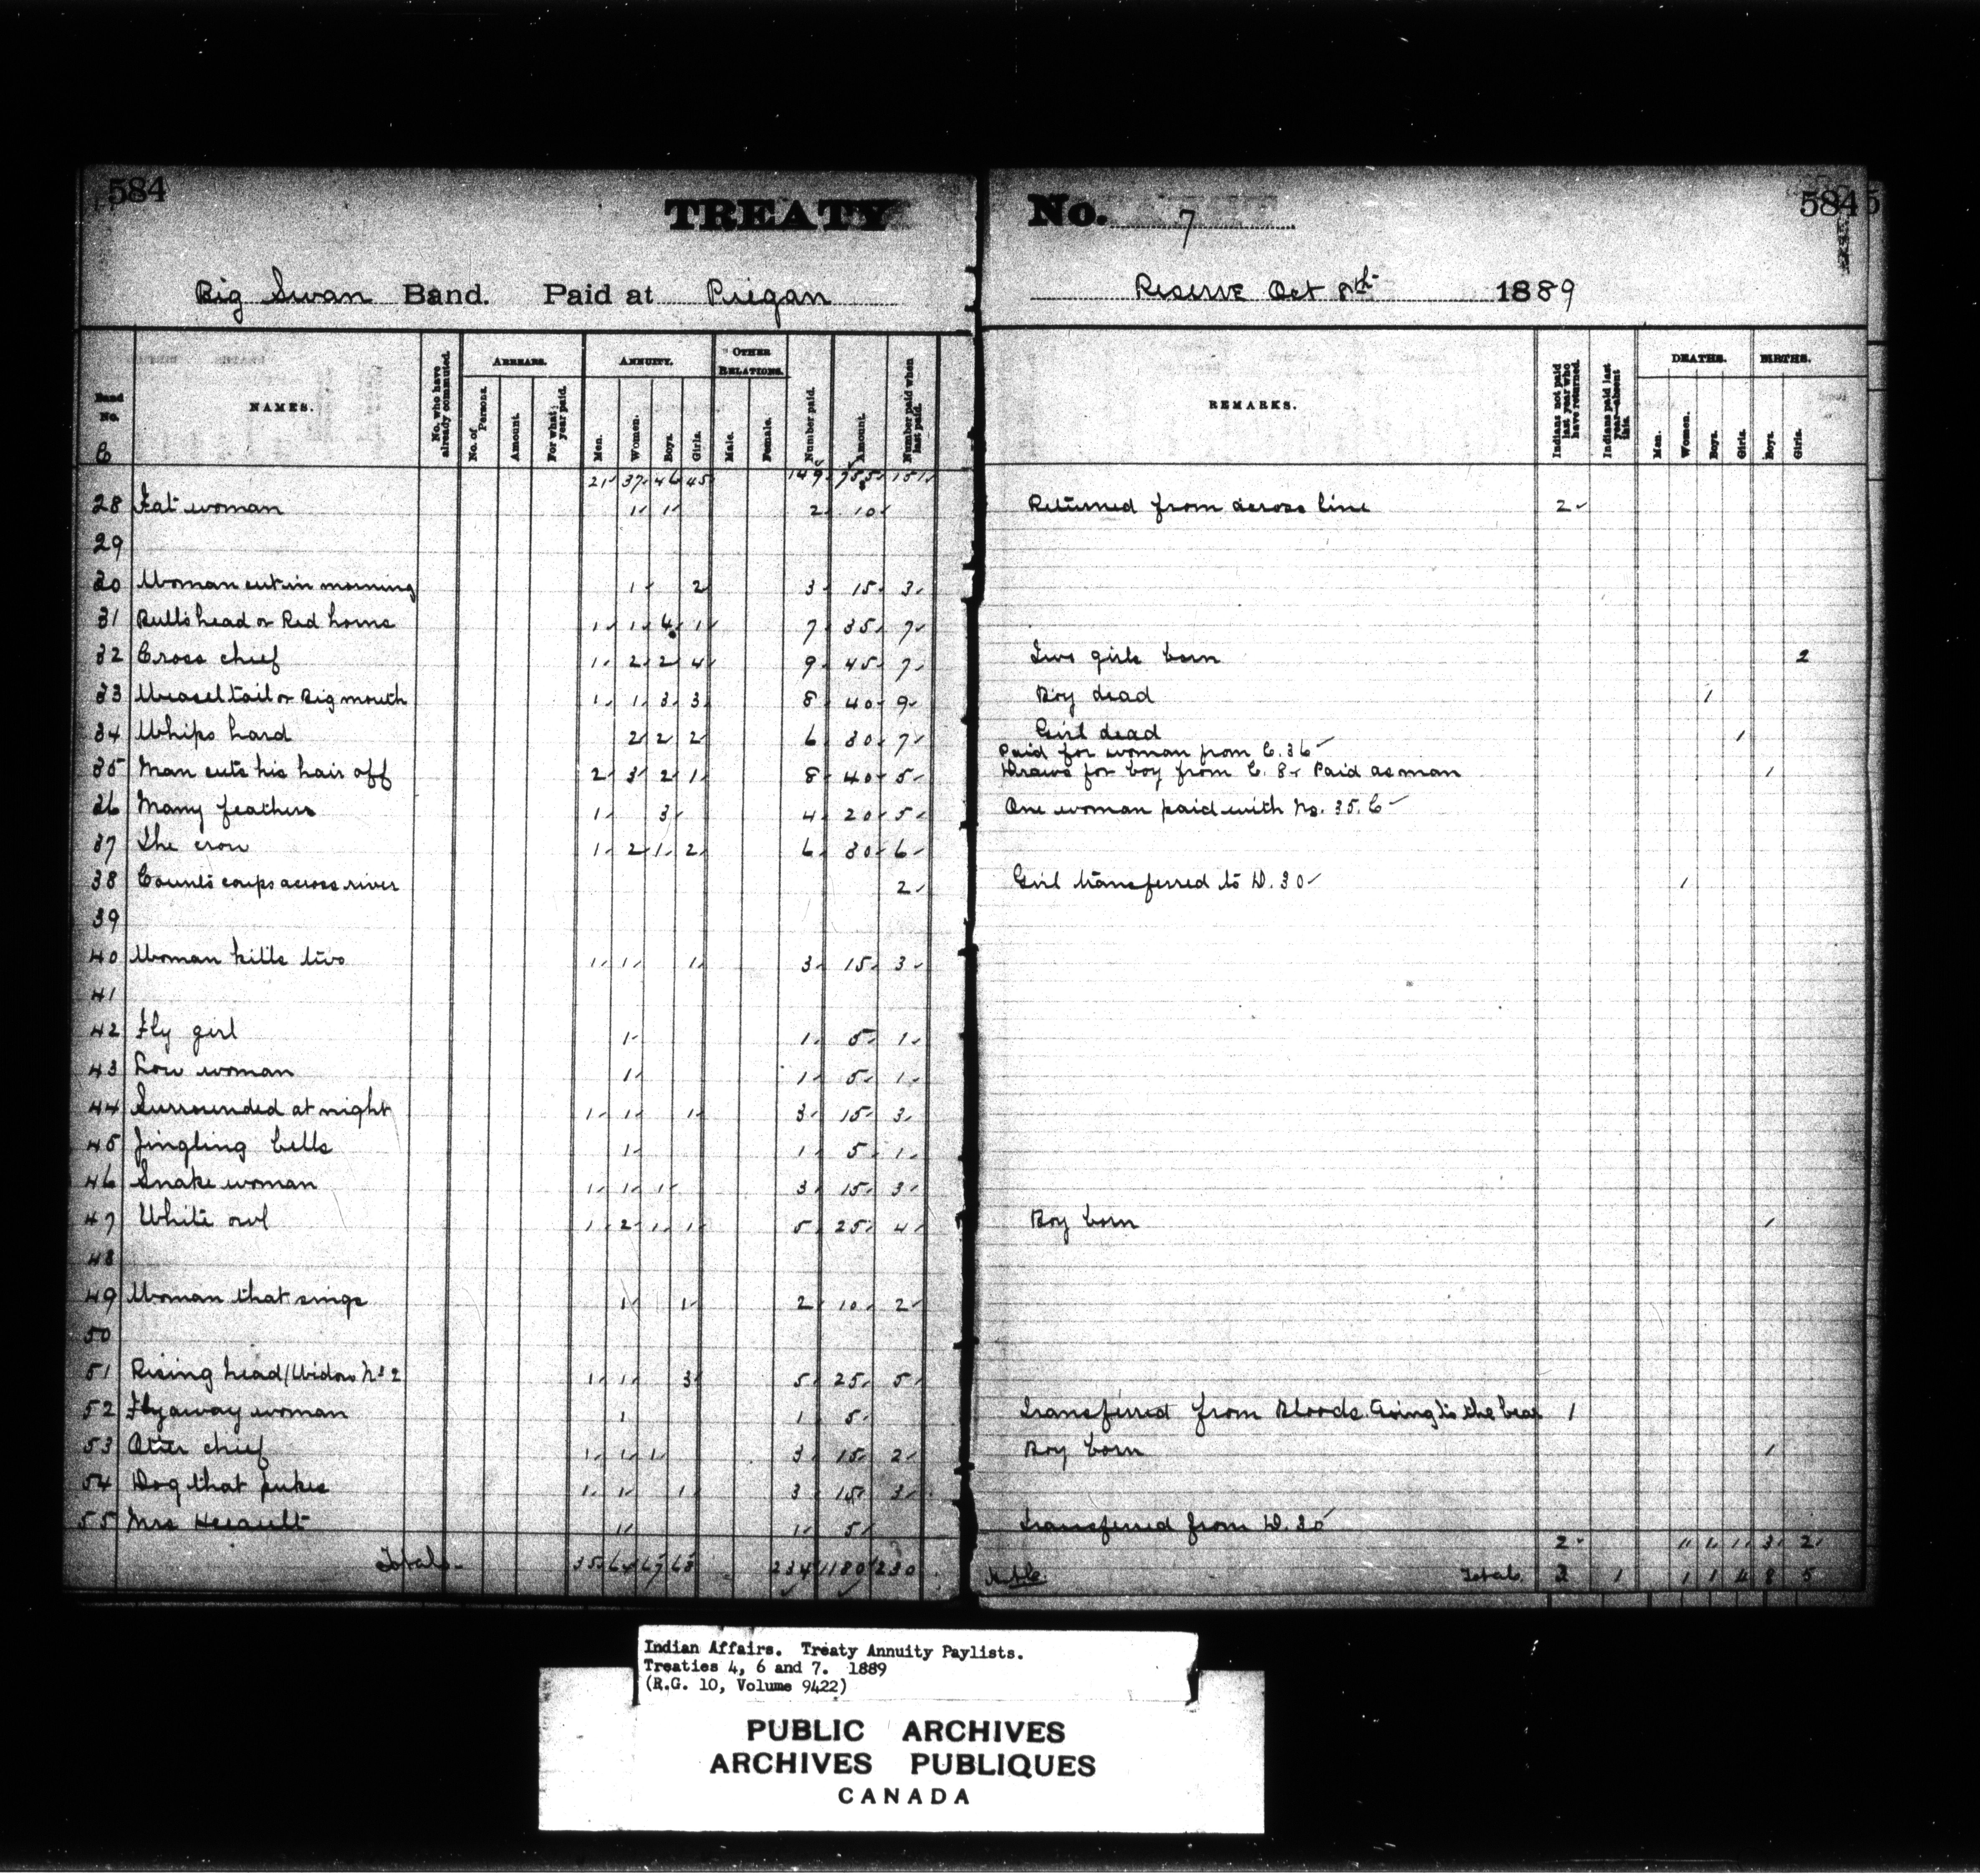 584
TREATY
No. 7
584
Big Swan Band. Paid at Piegan
Reserve Oct 8th 1889
Band No.
NAMES.
No. who have already commuted.
ARREARS.
No. of Persons.
Amount.
For what year paid.
ANNUITY.
Men.
Women.
Boys.
Girls.
OTHER RELATIONS.
Male.
Female.
Number paid.
Amount.
Number paid when last paid.
REMARKS.
Indians not paid last year who have returned.
Indians paid last year—absent this.
DEATHS.
Men.
Women.
Boys.
Girls.
BIRTHS.
Boys.
Girls.
C
21 37 46 45 149 755 151
28 Fat woman 1 1 2 10 Returned from across line 2
29
30 Woman cut in morning 1 2 3 15 3
31 Bulls head or Red horns 1 1 4 1 7 35 7
32 Cross chief 1 2 2 4 9 45 7 Two girls born 2
33 Weasel tail or Big mouth 1 1 3 3 8 40 9 Boy dead 1
34 Whips hard 2 2 2 6 30 7 Girl dead 1
Paid for woman from C. 36
35 Man cuts his hair off 2 3 2 1 8 40 5 Draws for boy from C. 8 Paid as man 1
36 Many feathers 1 3 4 20 5 One woman paid with No. 35. C
37 The crow 1 2 1 2 6 30 6
38 Counts coups across river 2 Girl transferred to D. 30 1
39
40 Woman kills two 1 1 1 3 15 3
41
42 Fly girl 1 1 5 1
43 Low woman 1 1 5 1
44 Surrounded at night 1 1 1 3 15 3
45 Jingling bells 1 1 5 1
46 Snake woman 1 1 1 3 15 3
47 White owl 1 2 1 1 5 25 4 Boy born 1
48
49 Woman that sings 1 1 2 10 2
50
51 Rising head/Widow No 2 1 1 3 5 25 5
52 Flyaway woman 1 1 5 Transferred from Bloods. Going to the bear 1
53 Otter chief 1 1 1 3 15 2 Boy born 1
54 Dog that pukes 1 1 1 3 15 3
55 Mrs 1 1 5 Transferred from D.
2 3 2
Totals 35 64 67 68 234 1180 230
Totals 1 1 1 4 8 5
Indian Affairs. Treaty Annuity Paylists.
Treaties 4, 6 and 7. 1889
(R.G. 10, Volume 9422)
PUBLIC ARCHIVES
ARCHIVES PUBLIQUES
CANADA